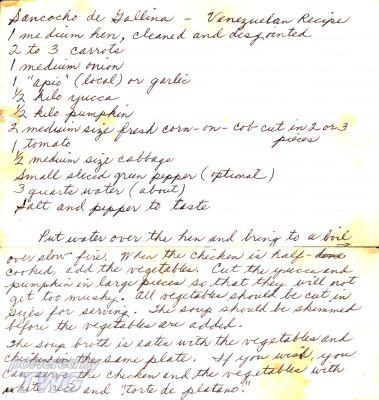 Sancocho de Gallina - Venezuelan Recipe
1 medium hen, cleaned and desjointed
2 to 3 carrots
1 medium onion
1 "apio" (local) or garlic
½ kilo yucca
½ kilo pumpkin
2 medium size fresh corn-on-cob cut in 2 or 3
pieces
1 tomato
½ medium size cabbage
Small sliced green pepper (optional)
3 quarts water (about)
Salt and pepper to taste
Put water over the hen and bring to a boil
over slow fire. When the chicken is half-done
cooked, add the vegetables. Cut the yucca and
pumpkin in large pieces so that they will not
get too mushy. All vegetables should be cut in
sizes for serving. The soup should be skimmed
before the vegetables are added.
The soup broth is eaten with the vegetables and
chicken in the same plate. If you wish, you
can serve the chicken and the vegetables with
white rice and "torte de platano."